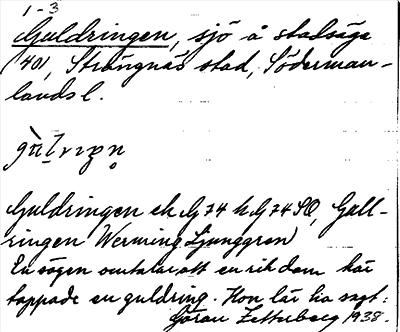 1-3
Guldringen, sjö å stadsäga
401, Strängnäs stad, Söderman-
lands l.
Guldringen ek G 74 h. G 74 SO, Gull-
ringen Werming Ljunggren)
En sägen omtalar att en rik dam här
tappade en guldring. Hon lär ha sagt:
Göran Zetterberg 1938.